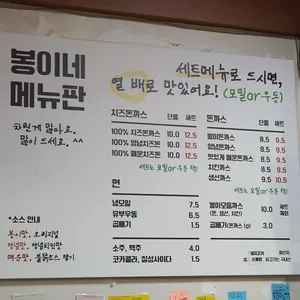 봉이네
메뉴판
차린게 많아요.
많이 드세요. ^^
세트메뉴로 드시면,
열 배로 맛있어요! (모밀or우동)
치즈돈까스 단품 세트
100% 치즈돈까스 10.0 12.5
100% 양념돈까스 10.0 12.5
100% 매운돈까스 10.0 12.5
세트는 모밀or우동 택1
돈까스 단품 세트
봉이돈까스 8.5 9.5
양념돈까스 8.5 9.5
맛있게 매운돈까스 8.5 9.5
생선까스 9.5 10.5
세트는 모밀or우동 택1
면
냉모밀 7.5
유부우동 6.5
곱빼기 1.5
봉이모듬까스 10.0
(돈, 생선, 치킨)
곱빼기(돈까스 1p) 3.0
소주, 맥주 4.0
코카콜라, 칠성사이다 1.5
*소스 안내
봉이맛, 오리지널
양념맛, 양념치킨맛
매운맛, 불닭소스 정도